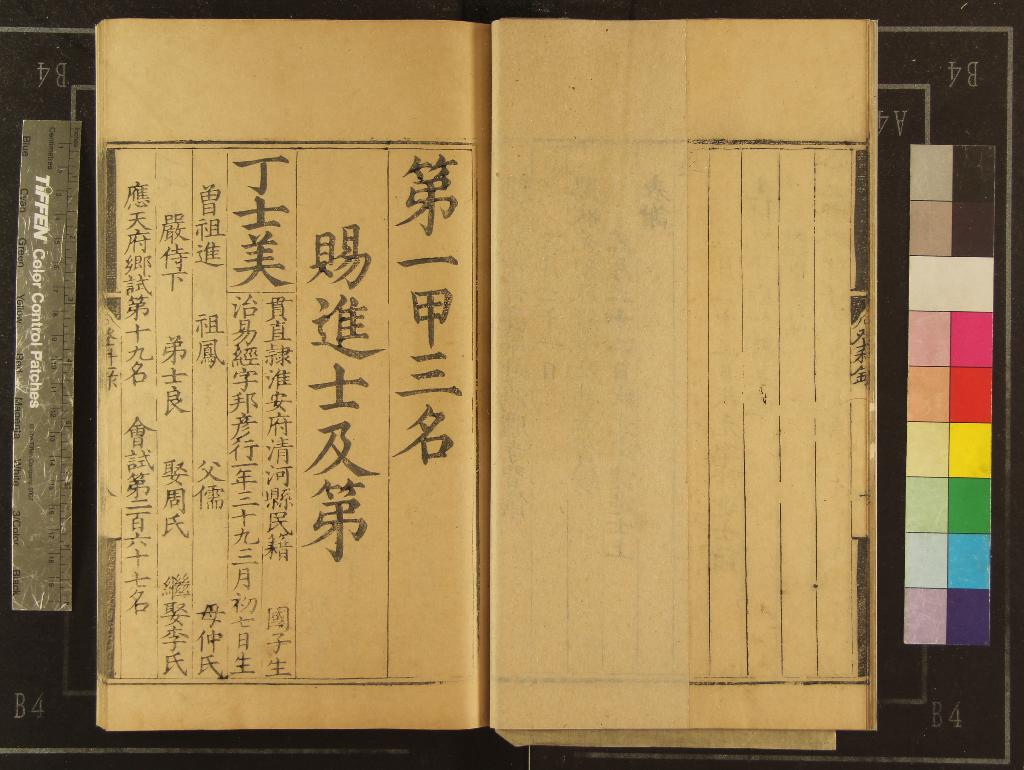 第一甲三名
賜進士及第
丁士美
貫直隷淮安府清河縣民籍 國子生
治易經字邦彦行一年三十九三月初七日生
曽祖進 祖鳳 父儒 母仲氏
嚴侍下 弟士良 娶周氏 繼娶李氏
應天府鄉試第十九名 會試第二百六十七名
TIFFEN Color Control Patches
Centimetres
Blue
Cyan
Green
Yellow
Red
Magenta
White
3/Color
Black
B4
B4
A4
B4
B4